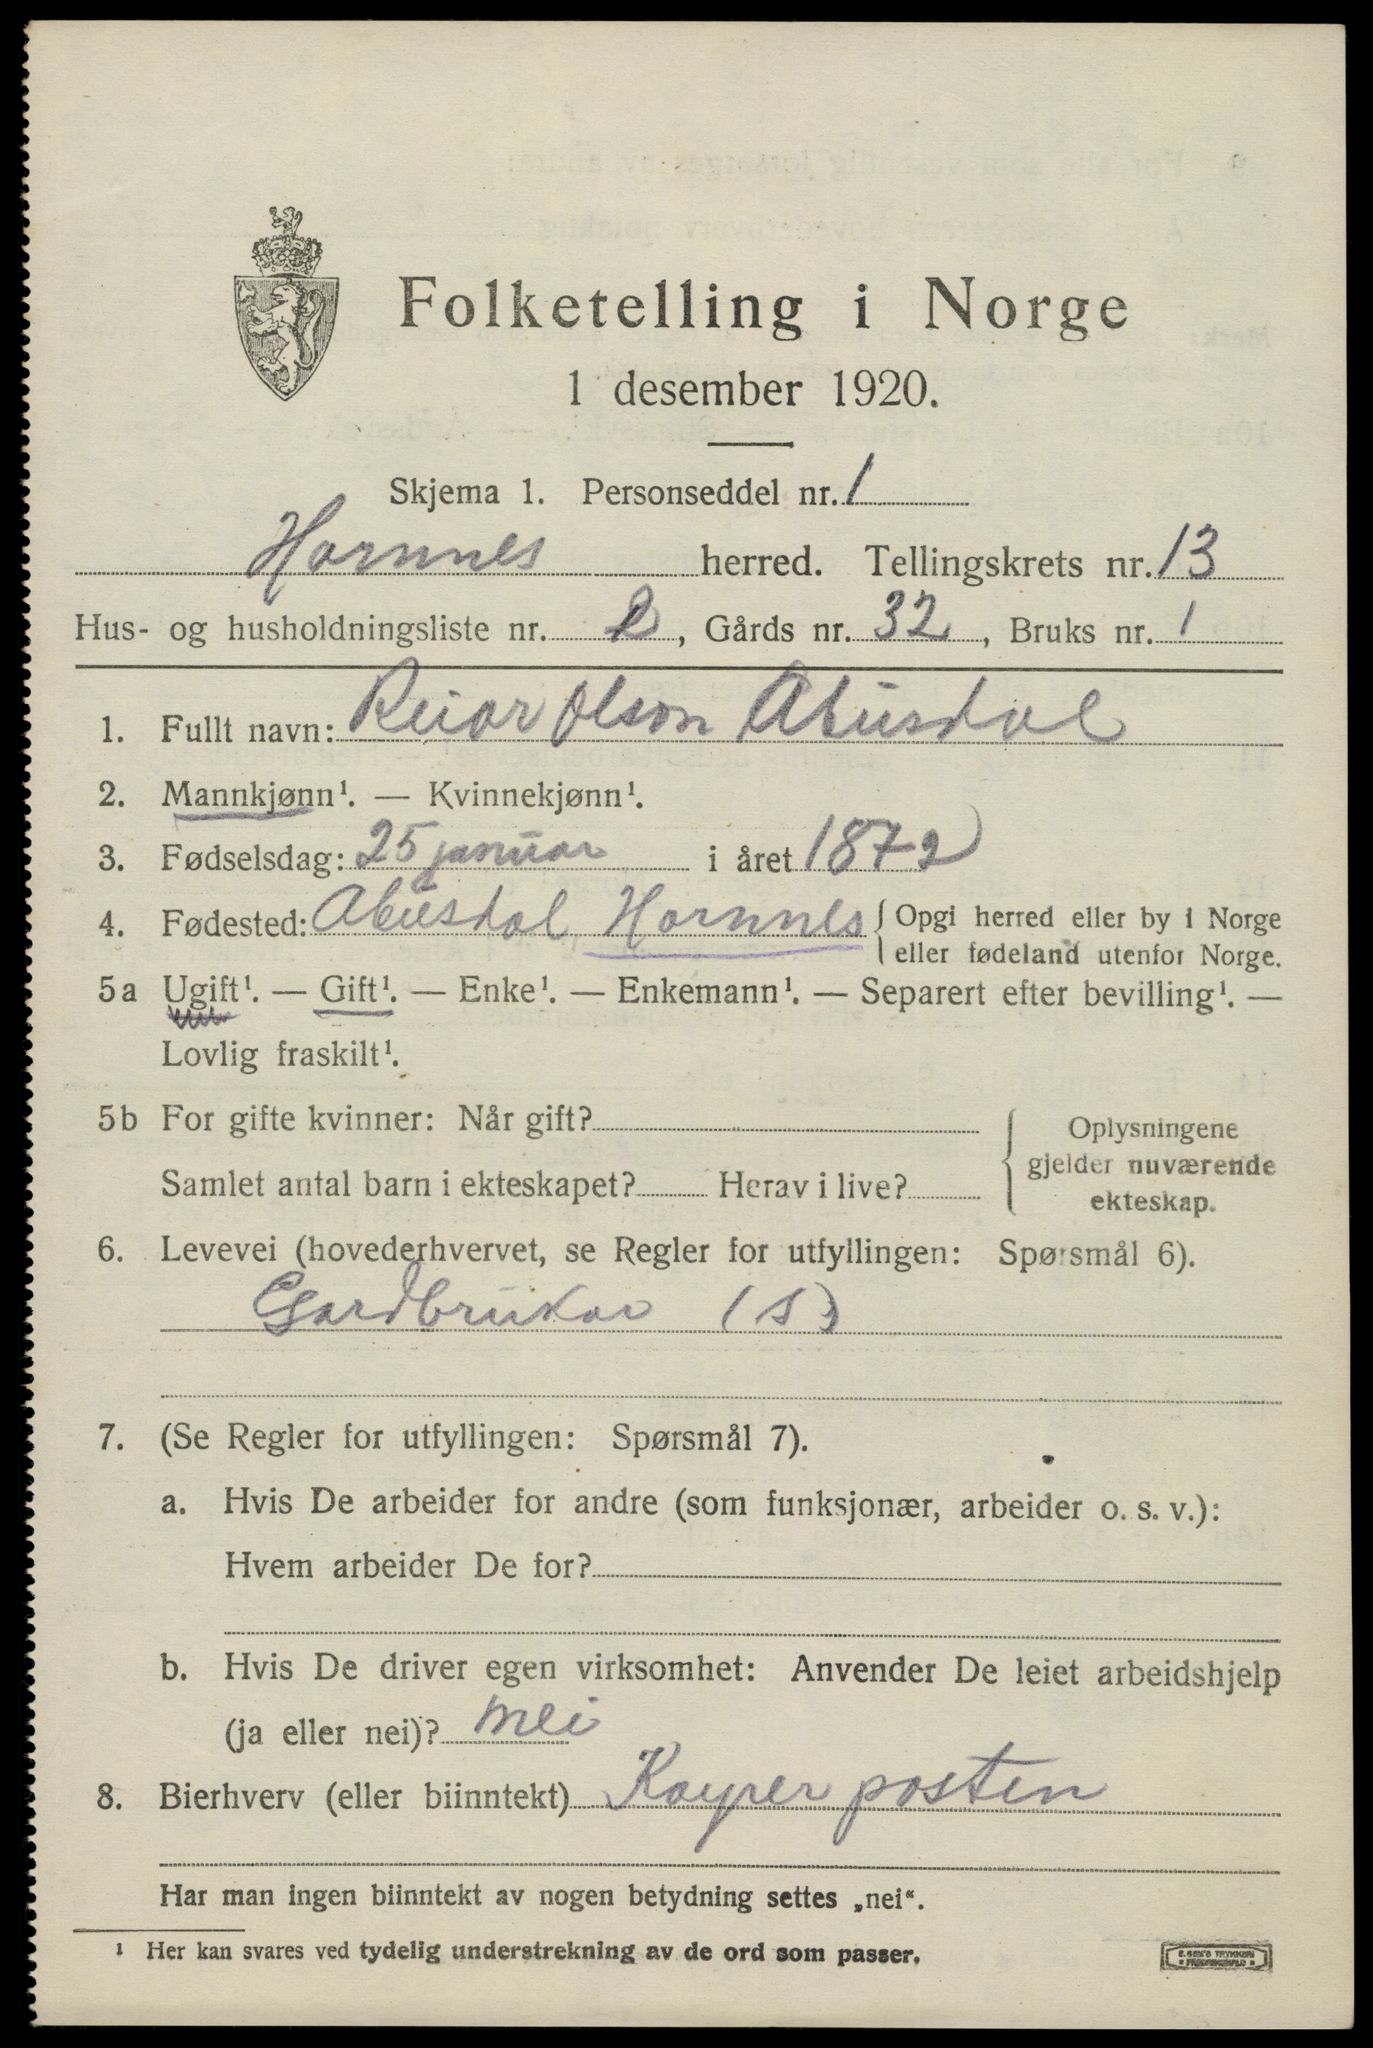 Folketelling i Norge
1 desember 1920.
Skjema 1. Personseddel nr. 1
Hornnes herred. Tellingskrets nr. 13
Hus- og husholdningsliste nr. 2, Gårds nr. 32, Bruks nr. 1
1. Fullt navn: Reiar Olson Abusdal
2. Mannkjønn¹. — Kvinnekjønn¹.
3. Fødselsdag: 25 januar i året 1872
4. Fødested: Abusdal Hornnes { Opgi herred eller by i Norge
eller fødeland utenfor Norge.
5a Ugift¹. — Gift¹. — Enke¹. — Enkemann¹. — Separert efter bevilling¹. —
Lovlig fraskilt¹.
5b For gifte kvinner: Når gift?
Samlet antal barn i ekteskapet? Herav i live?
Oplysningene
gjelder nuværende
ekteskap.
6. Levevei (hovederhvervet, se Regler for utfyllingen: Spørsmål 6).
Gardbrukar (s)
7. (Se Regler for utfyllingen: Spørsmål 7).
a. Hvis De arbeider for andre (som funksjonær, arbeider o. s. v.):
Hvem arbeider De for?
b. Hvis De driver egen virksomhet: Anvender De leiet arbeidshjelp
(ja eller nei)? nei
8. Bierhverv (eller biinntekt) Køyrer posten
Har man ingen biinntekt av nogen betydning settes „nei“.
¹ Her kan svares ved tydelig understrekning av de ord som passer.